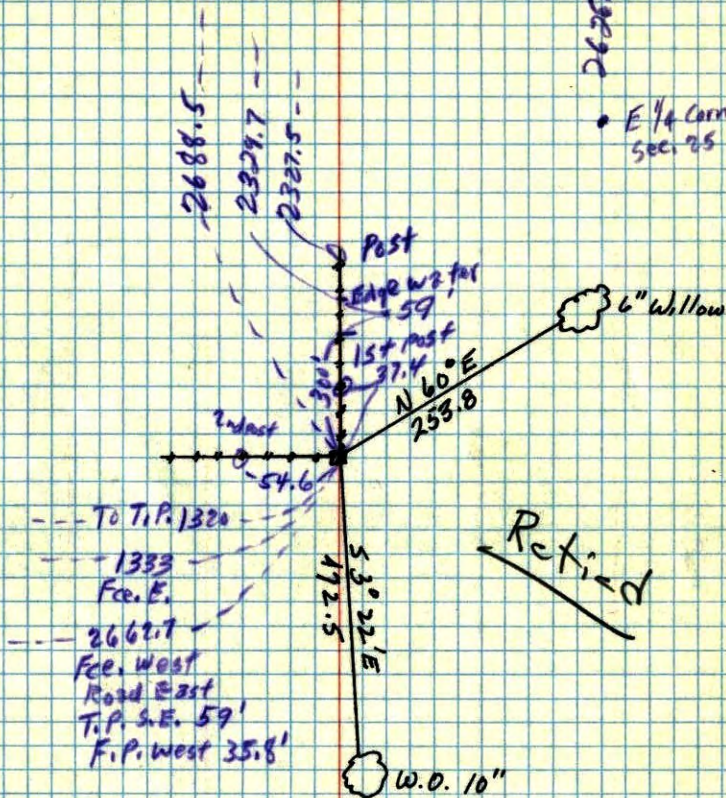 2688.5
2329.7
2327.5
2626.
E 1/4 Corn
Sec. 25
Post
Edge water
59'
1st post
37.4
300'
6" Willow
N 60° E
253.8
2nd post
54.6
To T.P. 1320
1333
Fce. E.
2662.7
Fce. West
Road East
T.P. S.E. 59'
F.P. West 35.8'
S 3° 22' E
172.5
Retied
W.O. 10"